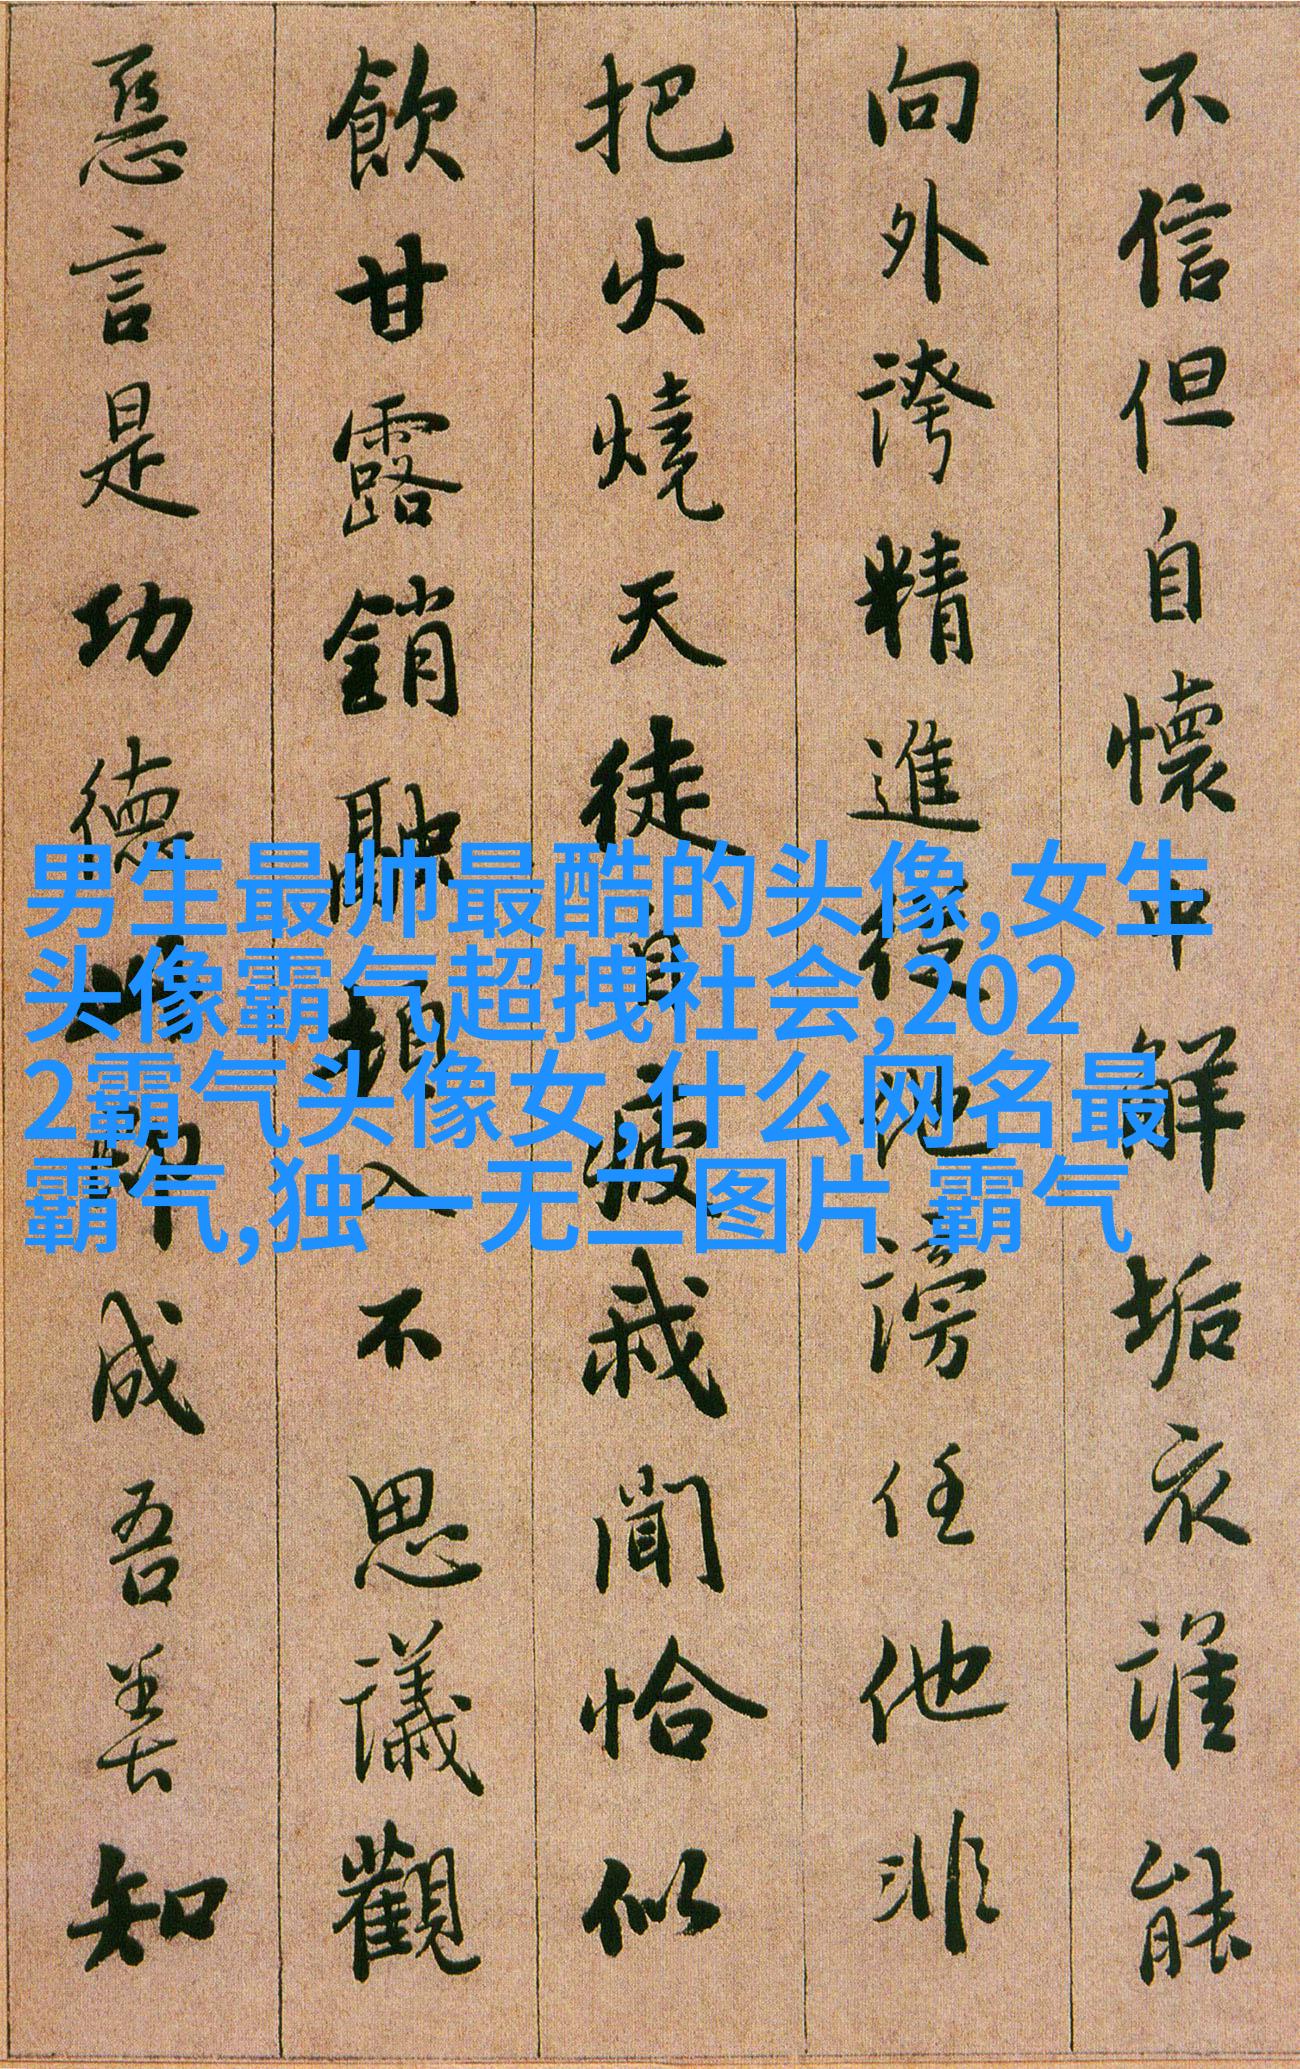 不信但自懷中解垢衣誰能
向外誇精進從他謗任他非
把火燒天徒自疲我聞恰似
飲甘露銷融頓入不思議觀
惡言是功德此即成吾善知
男生最帅最酷的头像,女生
头像霸气超拽社会,202
2霸气头像女,什么网名最
霸气,独一无二图片 霸气